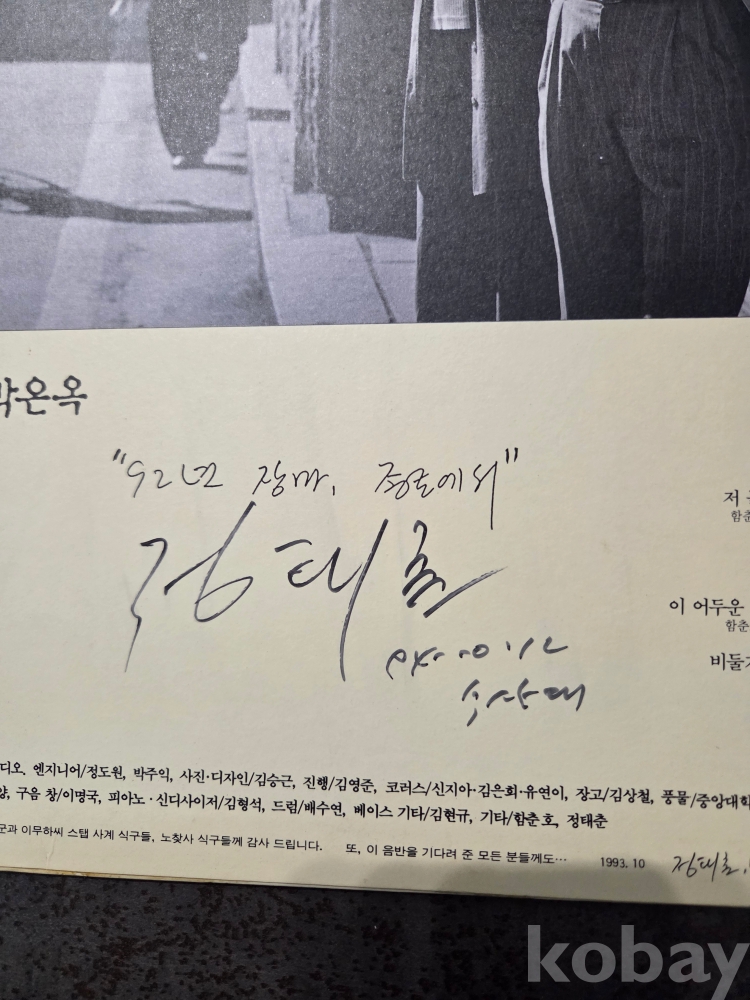 박은옥
"92년 장마, 종로에서"
저
함춘
정태춘
이 어두운
함춘
비둘기
디오. 엔지니어/정도원, 박주익, 사진·디자인/김승근, 진행/김영준, 코러스/신지아·김은희·유연이, 장고/김상철, 풍물/중앙대학
양, 구음 창/이명국, 피아노·신디사이저/김형석, 드럼/배수연, 베이스 기타/김현규, 기타/함춘호, 정태춘
군과 이무하씨 스탭 사계 식구들, 노찾사 식구들께 감사 드립니다. 또, 이 음반을 기다려 준 모든 분들께도… 1993. 10 정태춘,
kobay